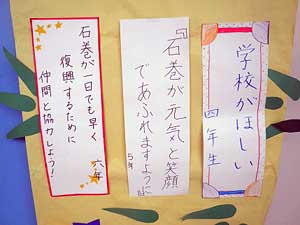 学校がほしい
四年生
『石巻が元気と笑顔
であふれますように』
5年
石巻が一日でも早く
復興するために
仲間と協力しよう!
六年